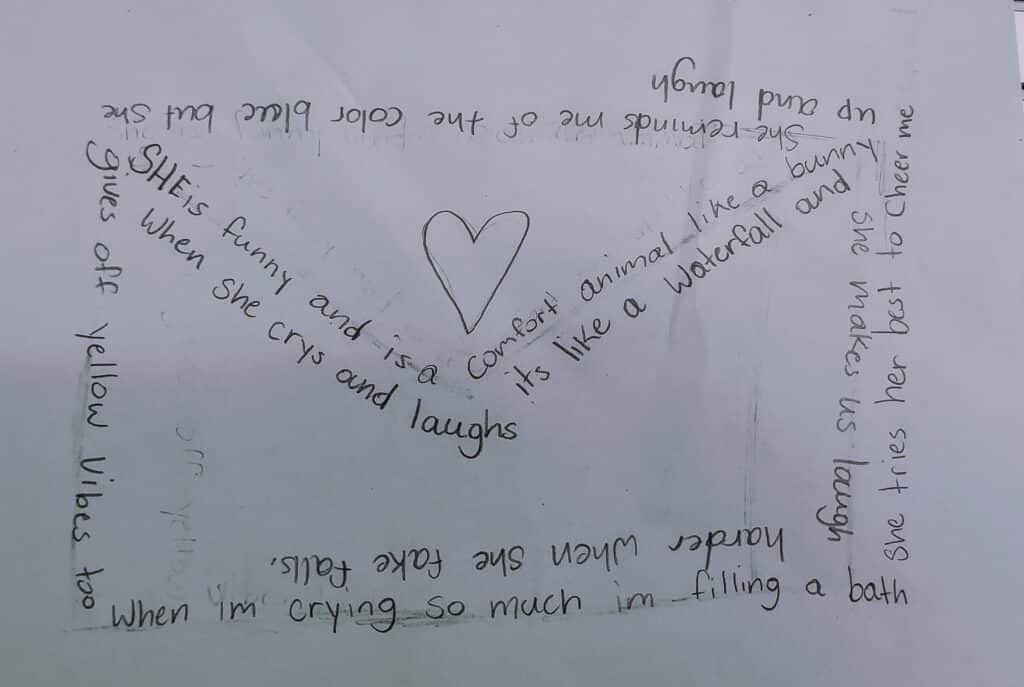 SHE is funny and is a comfort animal like a bunny
When she crys and laughs its like a waterfall and
she makes us laugh
harder when she fake falls.
When im crying so much im filling a bath
she tries her best to Cheer me
up and laugh
She reminds me of the color blue but she
gives off yellow Vibes too